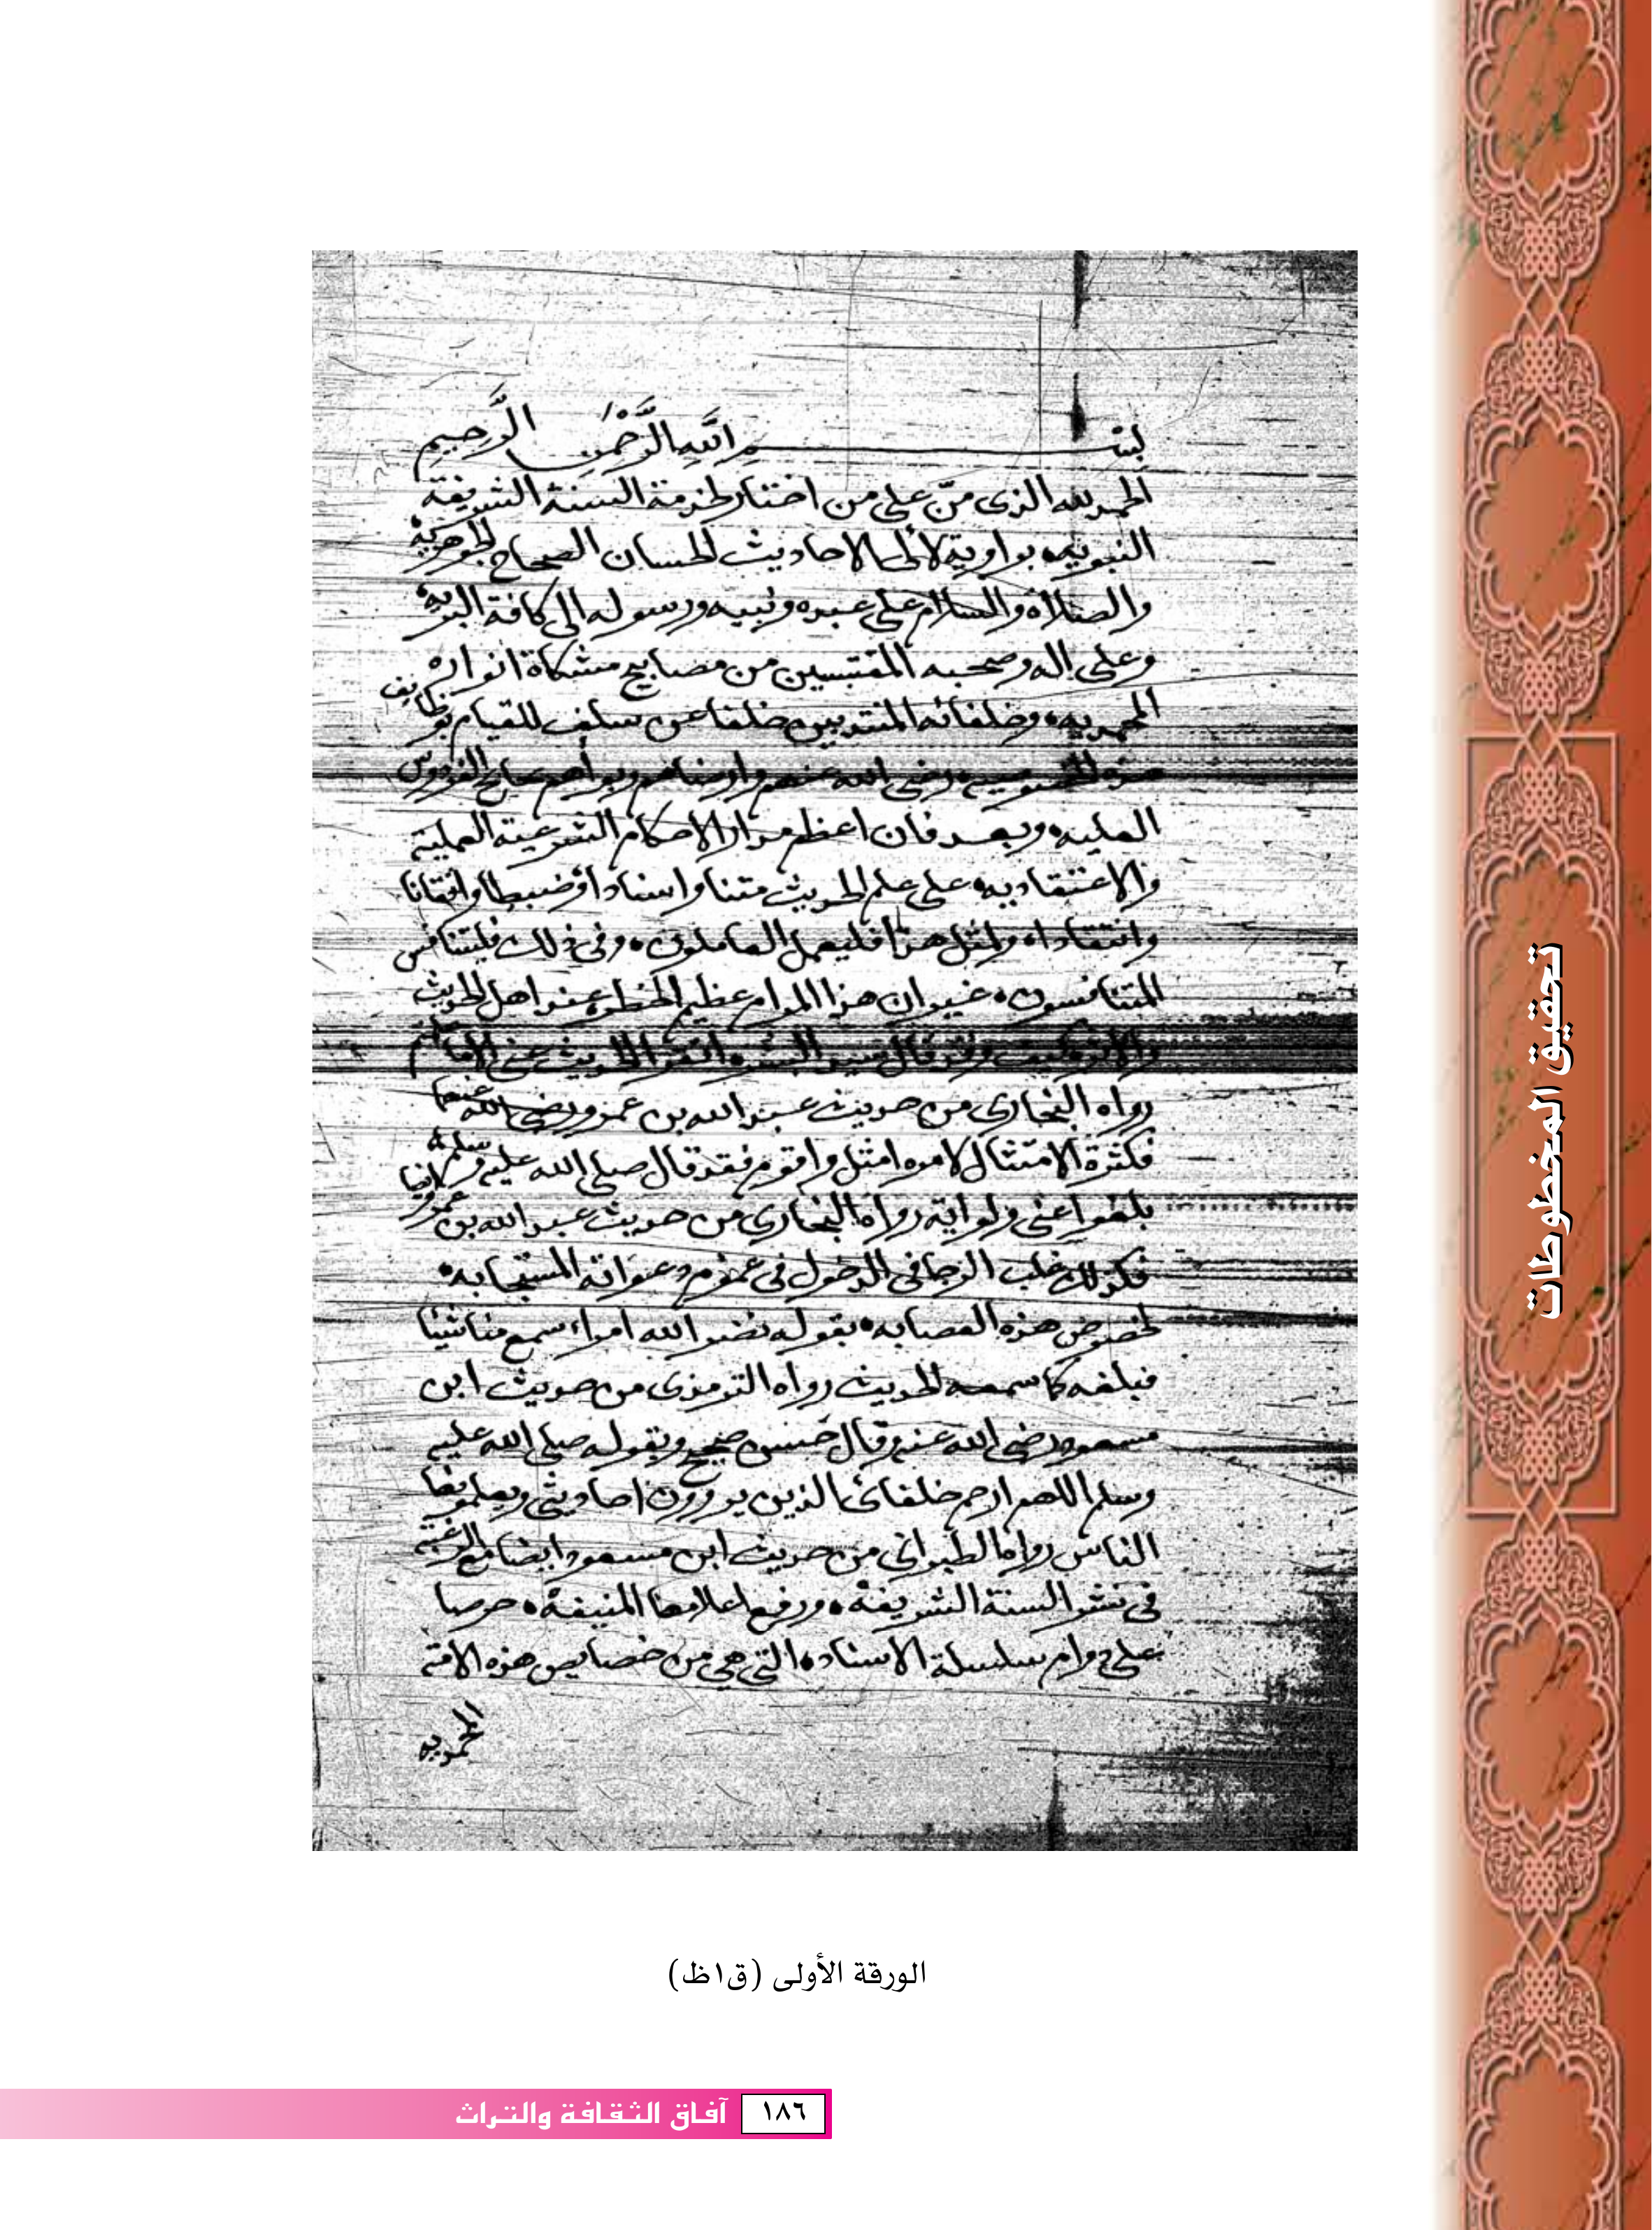 بسم الله الرحمن الرحيم
الحمد لله الذى منّ على من اختار لخدمة السنة الشريفة
النبويه بو اورية لآلئ الاحاديث الحسان الصحاح الجوهرية
والصلاة والسلام على عبده ونبيه ورسوله الى كافة البريه
وعلى اله وصحبه المقتبسين من مصابيح مشكاة انواره
المحمديه وخلفائه المنتدبين خلفا عن سلف للقيام بوظايف
هذه الخصوصيه رضى الله عنهم وارضاهم وبوأهم الفردوس
العليه وبعد فان اعظم مدار الاحكام الشرعية العملية
والاعتقاديه على علم الحديث متنا واسنادا وضبطا واتقانا
وانتقادا ولمثل هذا فليعمل العاملون وفى ذلك فليتنافس
المتنافسون غير ان هذا المرام عظيم الخطر عند اهل الحديث
والاثر وكيف وقد قال سيد البشر اتقوا الحديث عنى الا ما علمتم
رواه البخارى من حديث عبد الله بن عمرو رضى الله عنهما
فكثرة الامتثال لامره امثل واقوم فقد قال صلى الله عليه وسلم
بلغوا عنى ولو اية رواه البخارى من حديث عبد الله بن عمرو ايضا
فكذلك غلب الرجا فى الدخول فى عموم دعواته المستجابه
لخصوص هذه العصابه بقوله نضر الله امراء سمع منا شيئا
فبلغه كما سمعه الحديث رواه الترمذى من حديث ابن
مسعود رضى الله عنه وقال حسن صحيح وبقوله صلى الله عليه
وسلم اللهم ارحم خلفائى الذين يروون احاديثى ويعلمونها
الناس رواها الطبرانى من حديث ابن مسعود ايضا مع الرغبة
فى نشر السنة الشريفة ورفع اعلامها المنيفة حرصا
على دوام سلسلة الاسناد التى هى من خصايص هذه الامة
المحمديه
الورقة الأولى (ق١ظ)
تحقيق المخطوطات
١٨٦ آفاق الثقافة والتراث